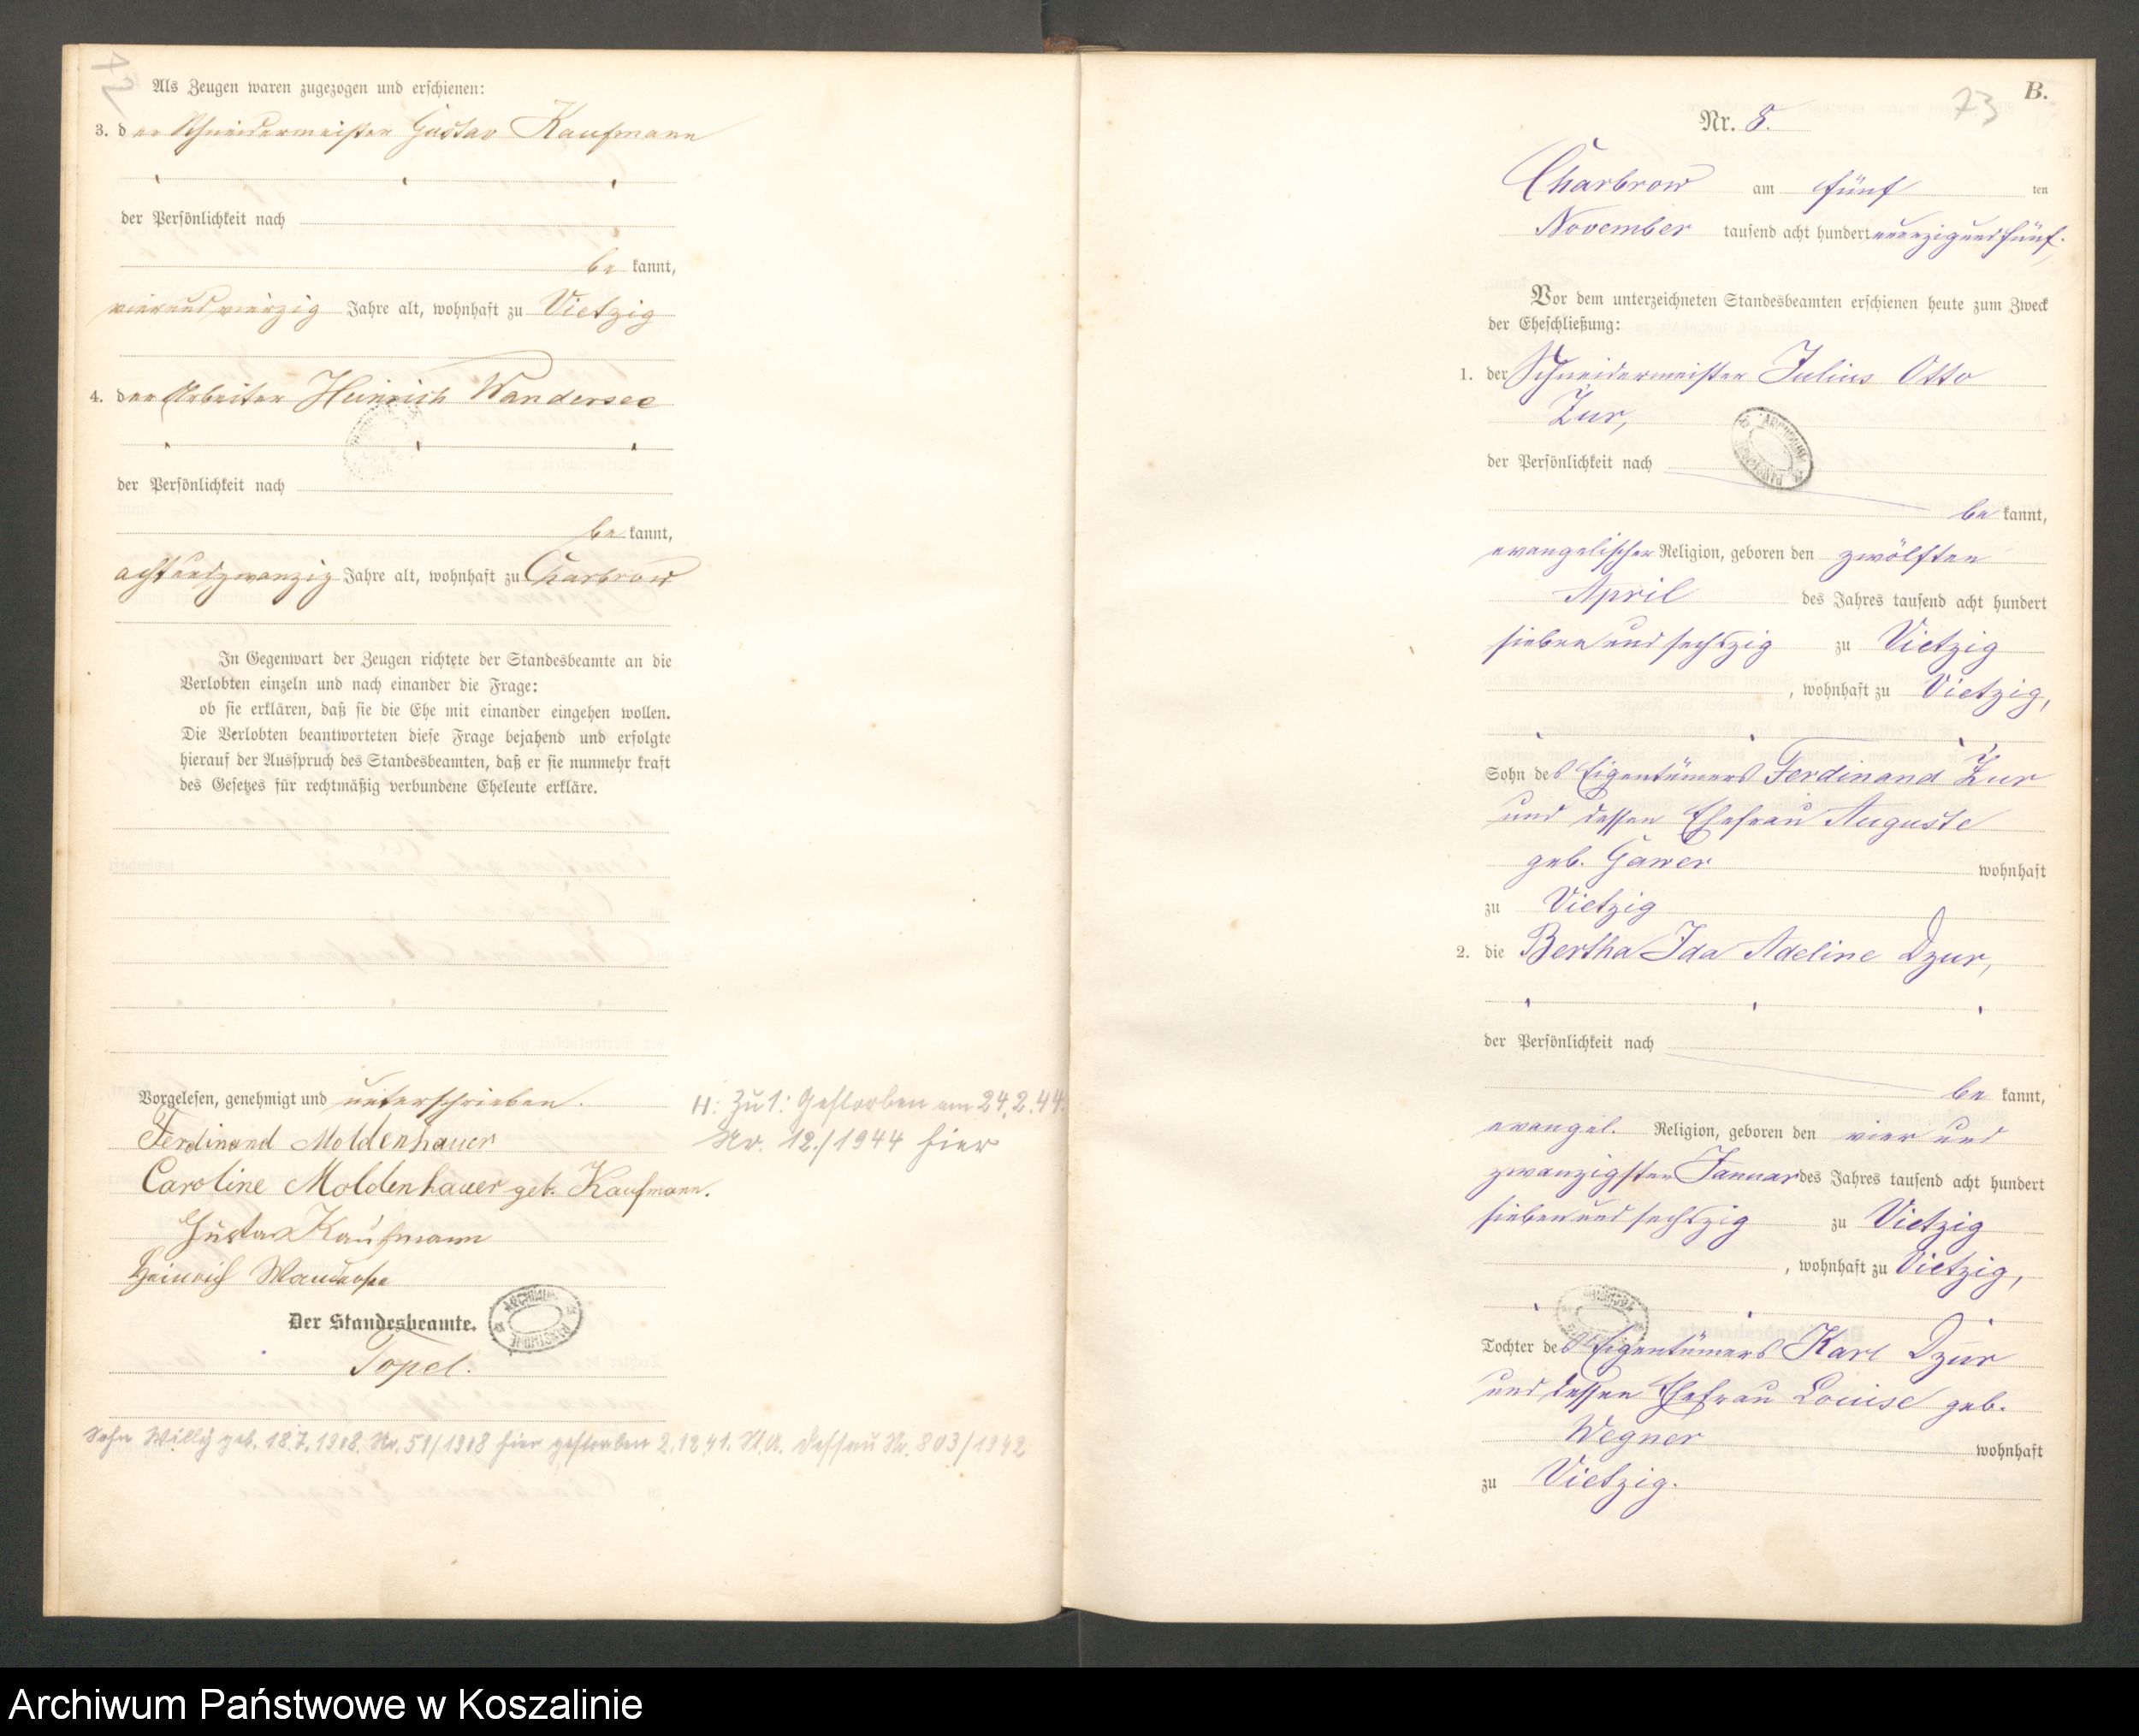 Als Zeugen waren zugezogen und erschienen:
3. der Schneidermeister Gustav Kaufmann
der Persönlichkeit nach
be kannt,
vierundvierzig Jahre alt, wohnhaft zu Vietzig
4. der Arbeiter Heinrich Wandersee
der Persönlichkeit nach
be kannt,
achtundzwanzig Jahre alt, wohnhaft zu Charbrow
In Gegenwart der Zeugen richtete der Standesbeamte an die
Verlobten einzeln und nach einander die Frage:
ob sie erklären, daß sie die Ehe mit einander eingehen wollen.
Die Verlobten beantworteten diese Frage bejahend und erfolgte
hierauf der Ausspruch des Standesbeamten, daß er sie nunmehr kraft
des Gesetzes für rechtmäßig verbundene Eheleute erkläre.
Vorgelesen, genehmigt und unterschrieben.
Ferdinand Moldenhauer
Caroline Moldenhauer geb. Kaufmann.
Gustav Kaufmann
Heinrich Wandersee
Der Standesbeamte.
Topel.
H: Zu 1: Gestorben am 24.2.44.
Nr. 12./1944 hier
Sohn Willy geb. 18.7.1918. Nr. 51/1918 hier gestorben 2.12.41. St.A. Dessau Nr. 803/1942
B.
73
Nr. 8.
Charbrow am fünf ten
November tausend acht hundert neunzig und fünf.
Vor dem unterzeichneten Standesbeamten erschienen heute zum Zweck
der Eheschließung:
1. der Schneidermeister Julius Otto
Zur,
der Persönlichkeit nach
be kannt,
evangelischer Religion, geboren den zwölften
April des Jahres tausend acht hundert
sieben und sechszig zu Vietzig
, wohnhaft zu Vietzig,
Sohn des Eigentümers Ferdinand Zur
und dessen Ehefrau Auguste
geb. Gawer wohnhaft
zu Vietzig
2. die Bertha Ida Adeline Dzur,
der Persönlichkeit nach
be kannt,
evangel. Religion, geboren den vier und
zwanzigsten Januar des Jahres tausend acht hundert
sieben und sechszig zu Vietzig
, wohnhaft zu Vietzig,
Tochter des Eigentümers Karl Dzur
und dessen Ehefrau Louise geb.
Wegner wohnhaft
zu Vietzig.
Archiwum Państwowe w Koszalinie